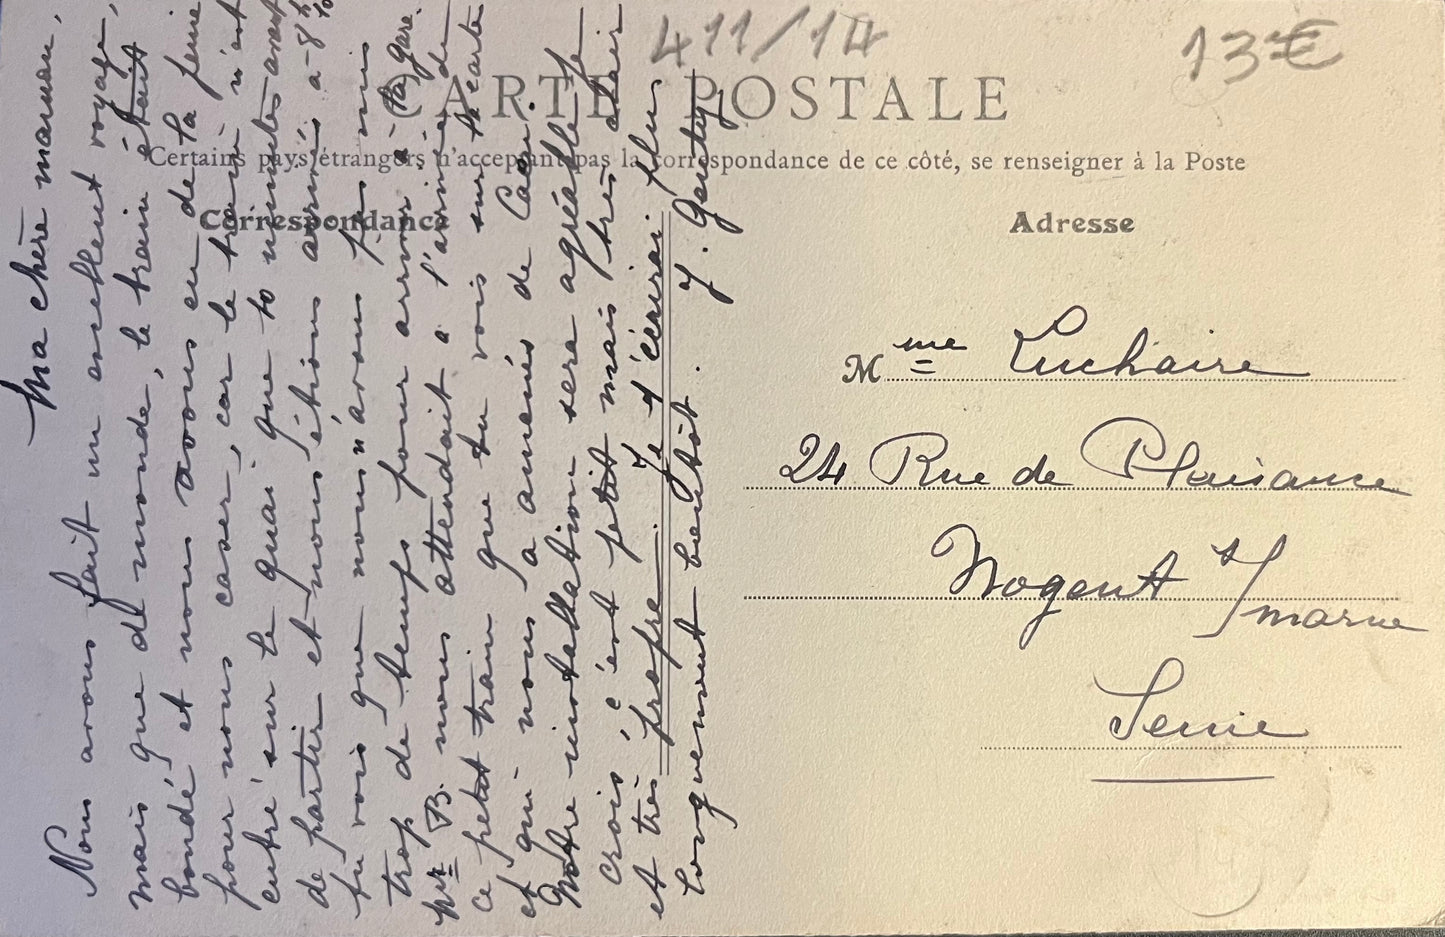 411/14
13€
CARTE POSTALE
Certains pays étrangers n'acceptant pas la correspondance de ce côté, se renseigner à la Poste
Correspondance
Adresse
Ma chère maman,
Nous avons fait un excellent voyage,
mais que de monde, le train était
bondé et nous avons eu de la peine
pour nous caser, car le train n'est
entré sur le quai que 10 minutes avant
de partir et nous étions arrivés à 8h10
tu vois que nous n'avons pas mis
trop de temps pour arriver à la gare.
Mr B. nous attendait à l'arrivée de
ce petit train que tu vois sur la carte
et qui nous a amenés de Caen.
Notre installation sera agréable je
crois, c'est petit mais très clair
et très propre. Je t'écrirai plus
longuement bientôt. Y. Gautey
Mme Luchaire
24 Rue de Plaisance
Nogent s/ marne
Seine